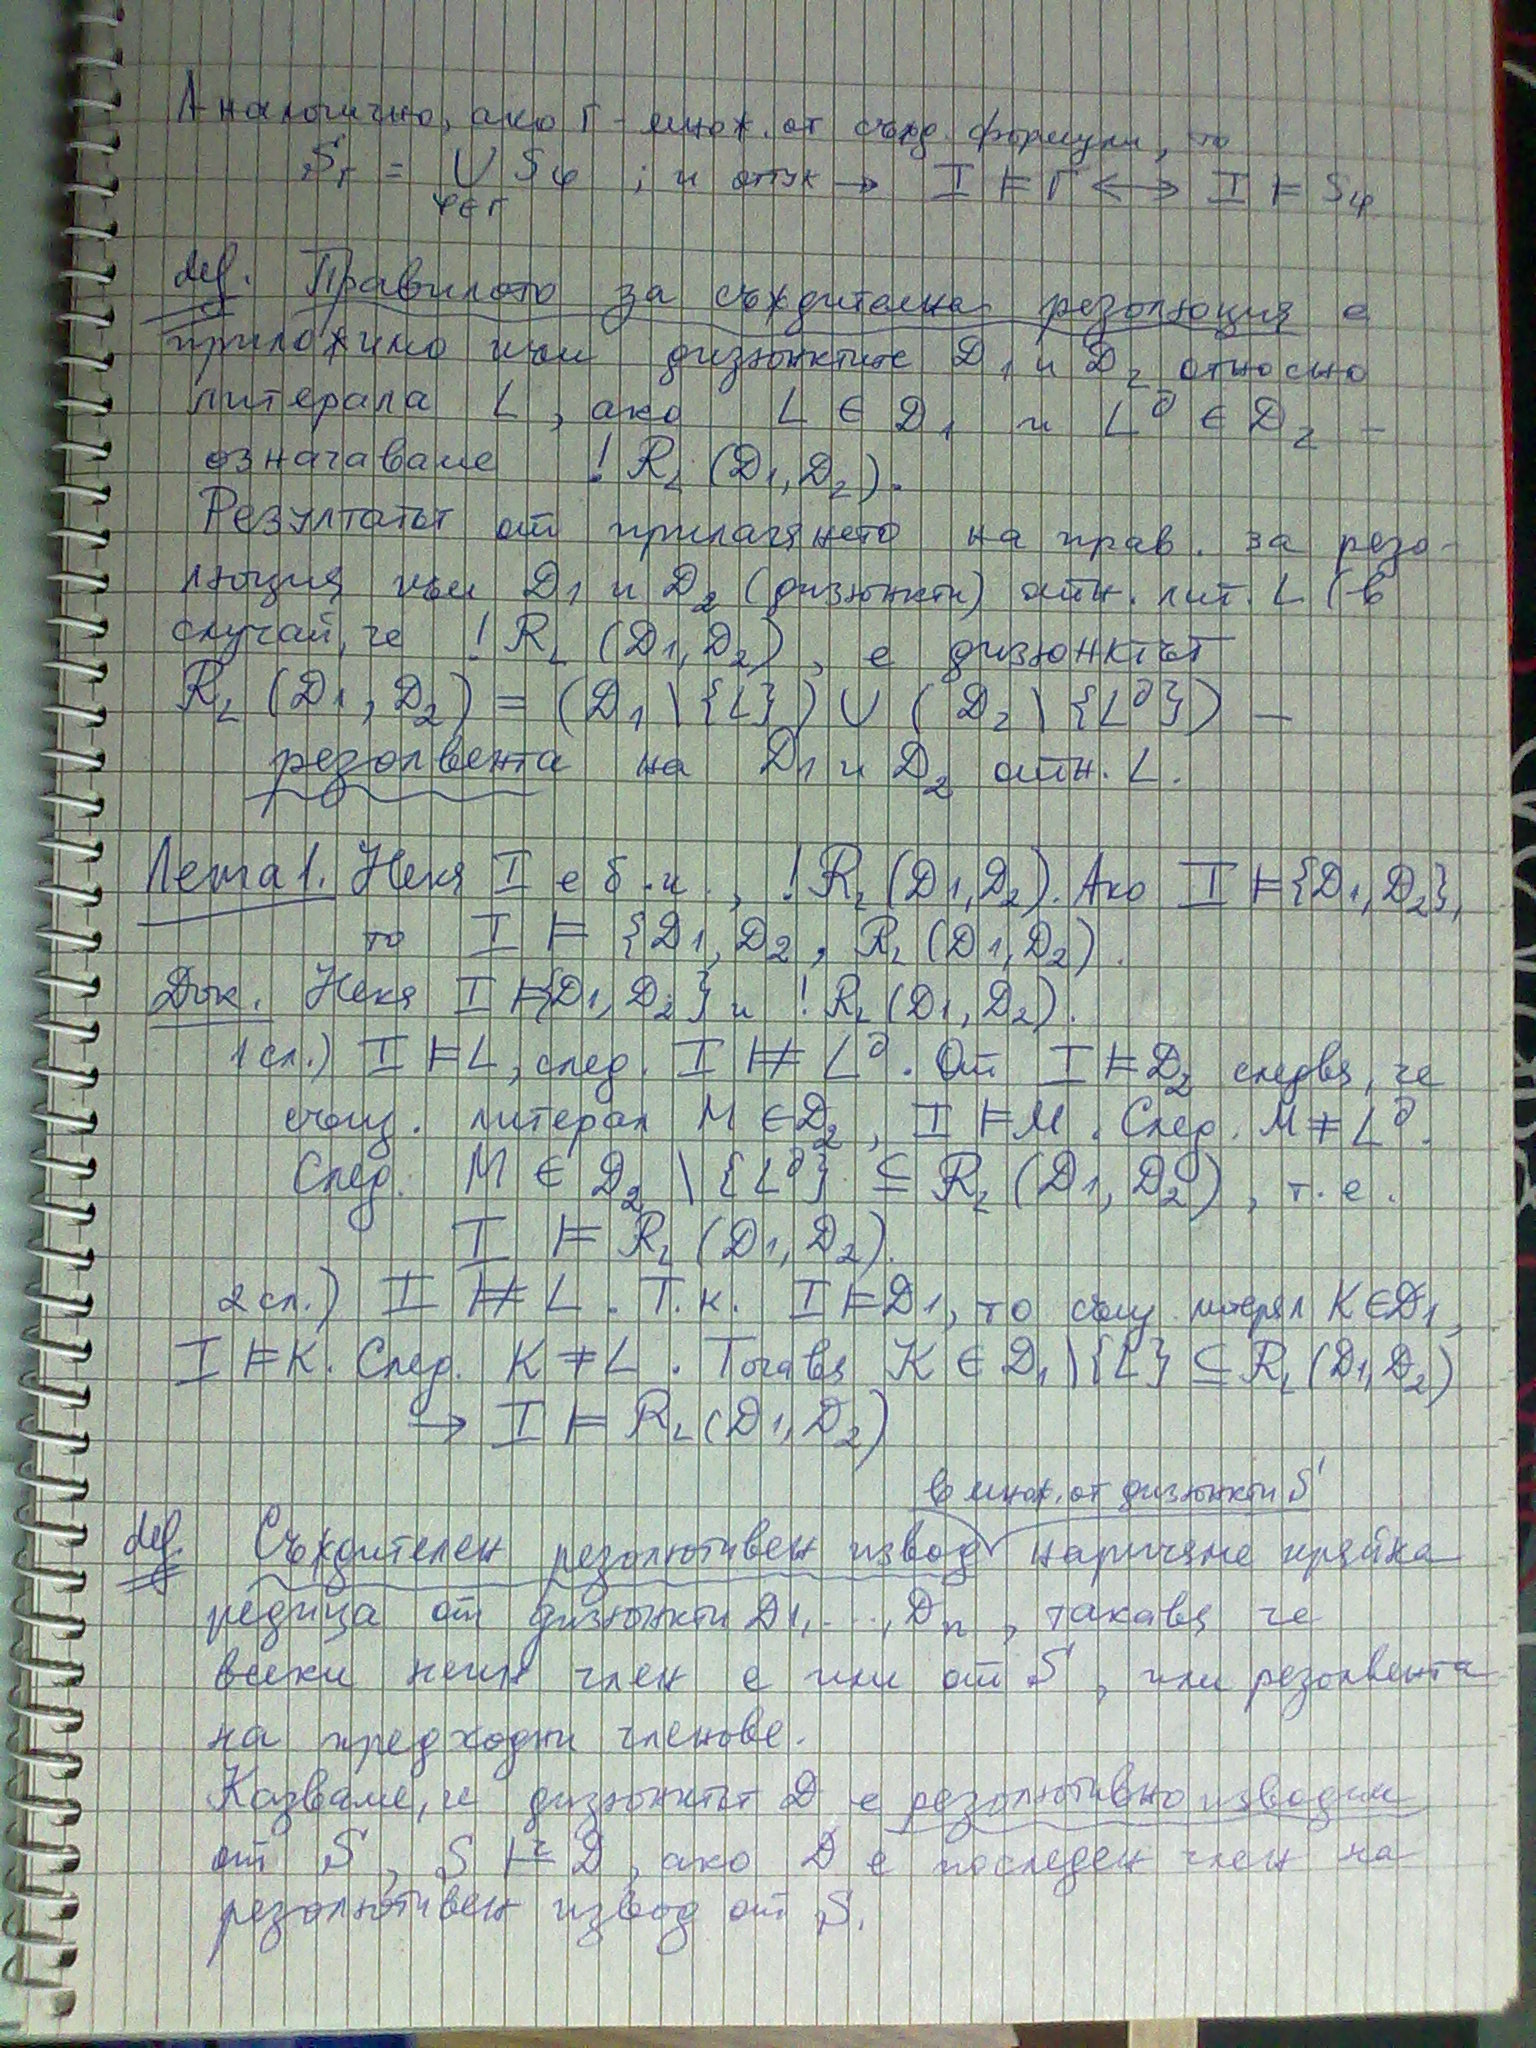 Аналогично, ако Γ - множ. от съжд. формули, то
S_Γ = ∪_{φ∈Γ} S_φ ; и оттук → I ⊨ Γ ⟷ I ⊨ S_φ
def. Правилото за съждителна резолюция е
приложимо към дизюнктите D₁ и D₂ относно
литерала L, ако L ∈ D₁ и L^∂ ∈ D₂ –
означаваме !R_L (D₁, D₂).
Резултатът от прилагането на прав. за резо-
люция към D₁ и D₂ (дизюнкти) отн. лит. L (в
случай, че !R_L (D₁, D₂), е дизюнктът
R_L (D₁, D₂) = (D₁ \ {L}) ∪ (D₂ \ {L^∂}) –
резолвента на D₁ и D₂ отн. L.
Лема 1. Нека I е б.и., !R_L (D₁, D₂). Ако I ⊨ {D₁, D₂},
то I ⊨ {D₁, D₂, R_L (D₁, D₂).
Док. Нека I ⊨ {D₁, D₂} и !R_L (D₁, D₂).
1сл.) I ⊨ L, след. I ⊭ L^∂. От I ⊨ D₂ следва, че
същ. литерал M ∈ D₂, I ⊨ M. След. M ≠ L^∂.
След. M ∈ D₂ \ {L^∂} ⊆ R_L (D₁, D₂), т.е.
I ⊨ R_L (D₁, D₂).
2сл.) I ⊭ L. Т.к. I ⊨ D₁, то същ. литерал K ∈ D₁,
I ⊨ K. След. K ≠ L. Тогава K ∈ D₁ \ {L} ⊆ R_L (D₁, D₂)
→ I ⊨ R_L (D₁, D₂)
в множ. от дизюнкти S
def. Съждителен резолютивен извод наричаме крайна
редица от дизюнкти D₁, ..., Dₙ, такава че
всеки неин член е или от S, или резолвента
на предходни членове.
Казваме, че дизюнктът D е резолютивно изводим
от S, S ⊢^r D, ако D е последен член на
резолютивен извод от S.